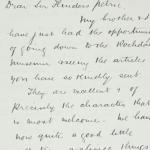 Dear Sir Flinders Petrie
My brother & I
have just had the opportuni
of going down to the Rochdale
Museum & seeing the articles
you have so kindly sent.
They are excellent & of
precisely the character that
is most welcome. We have
now quite a good little